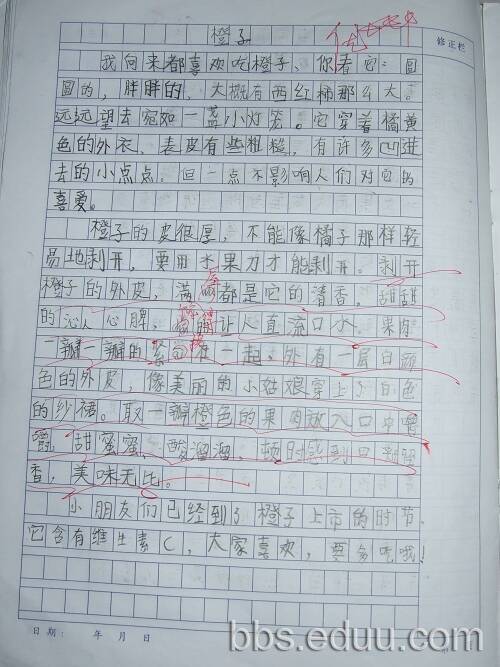 橙子
优
修正栏
我向来都喜欢吃橙子、你看它:圆
圆的,胖胖的、大概有西红柿那么大。
远远望去宛如一盏小灯笼。它穿着橘黄
色的外衣、表皮有些粗糙,有许多凹进
去的小点点,但一点不影响人们对它的
喜爱。
橙子的皮很厚,不能像橘子那样轻
易地剥开,要用水果刀才能剥开。剥开
橙子的外皮,满屋都是它的清香,甜甜
的沁人心脾,让人直流口水。果肉
一瓣一瓣的紧在一起,外有一层白颜
色的外皮,像美丽的小姑娘穿上了白色
的纱裙。取一瓣橙色的果肉放入口中嚼
嚼,甜蜜蜜、酸溜溜,顿时感到口
香,美味无比。
小朋友们已经到了橙子上市的时节,
它含有维生素C,大家喜欢,要多吃哦!
日期: 年 月 日
bbs.eduu.com